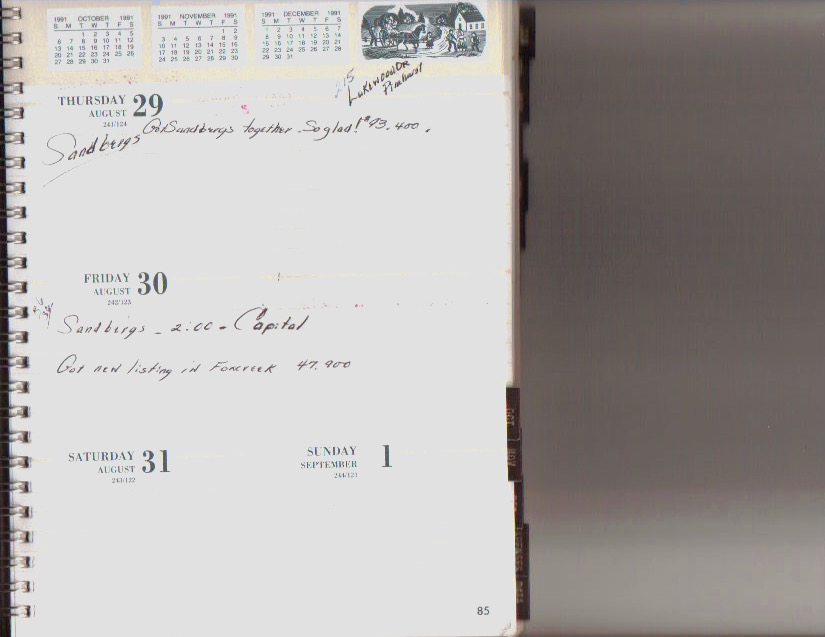 1991 OCTOBER 1991
S M T W T F S
1 2 3 4 5
6 7 8 9 10 11 12
13 14 15 16 17 18 19
20 21 22 23 24 25 26
27 28 29 30 31
1991 NOVEMBER 1991
S M T W T F S
1 2
3 4 5 6 7 8 9
10 11 12 13 14 15 16
17 18 19 20 21 22 23
24 25 26 27 28 29 30
1991 DECEMBER 1991
S M T W T F S
1 2 3 4 5 6 7
8 9 10 11 12 13 14
15 16 17 18 19 20 21
22 23 24 25 26 27 28
29 30 31
215
Lakewood Dr
Pinehurst
THURSDAY 29
AUGUST
241/124
Got Sandbergs together. So glad! $93,400.
Sandbergs
FRIDAY 30
AUGUST
242/123
Sandbergs - 2:00 - Capital
Got new listing in Foxcreek 47,900
SATURDAY 31
AUGUST
243/122
SUNDAY 1
SEPTEMBER
244/121
85
OCT
NOV